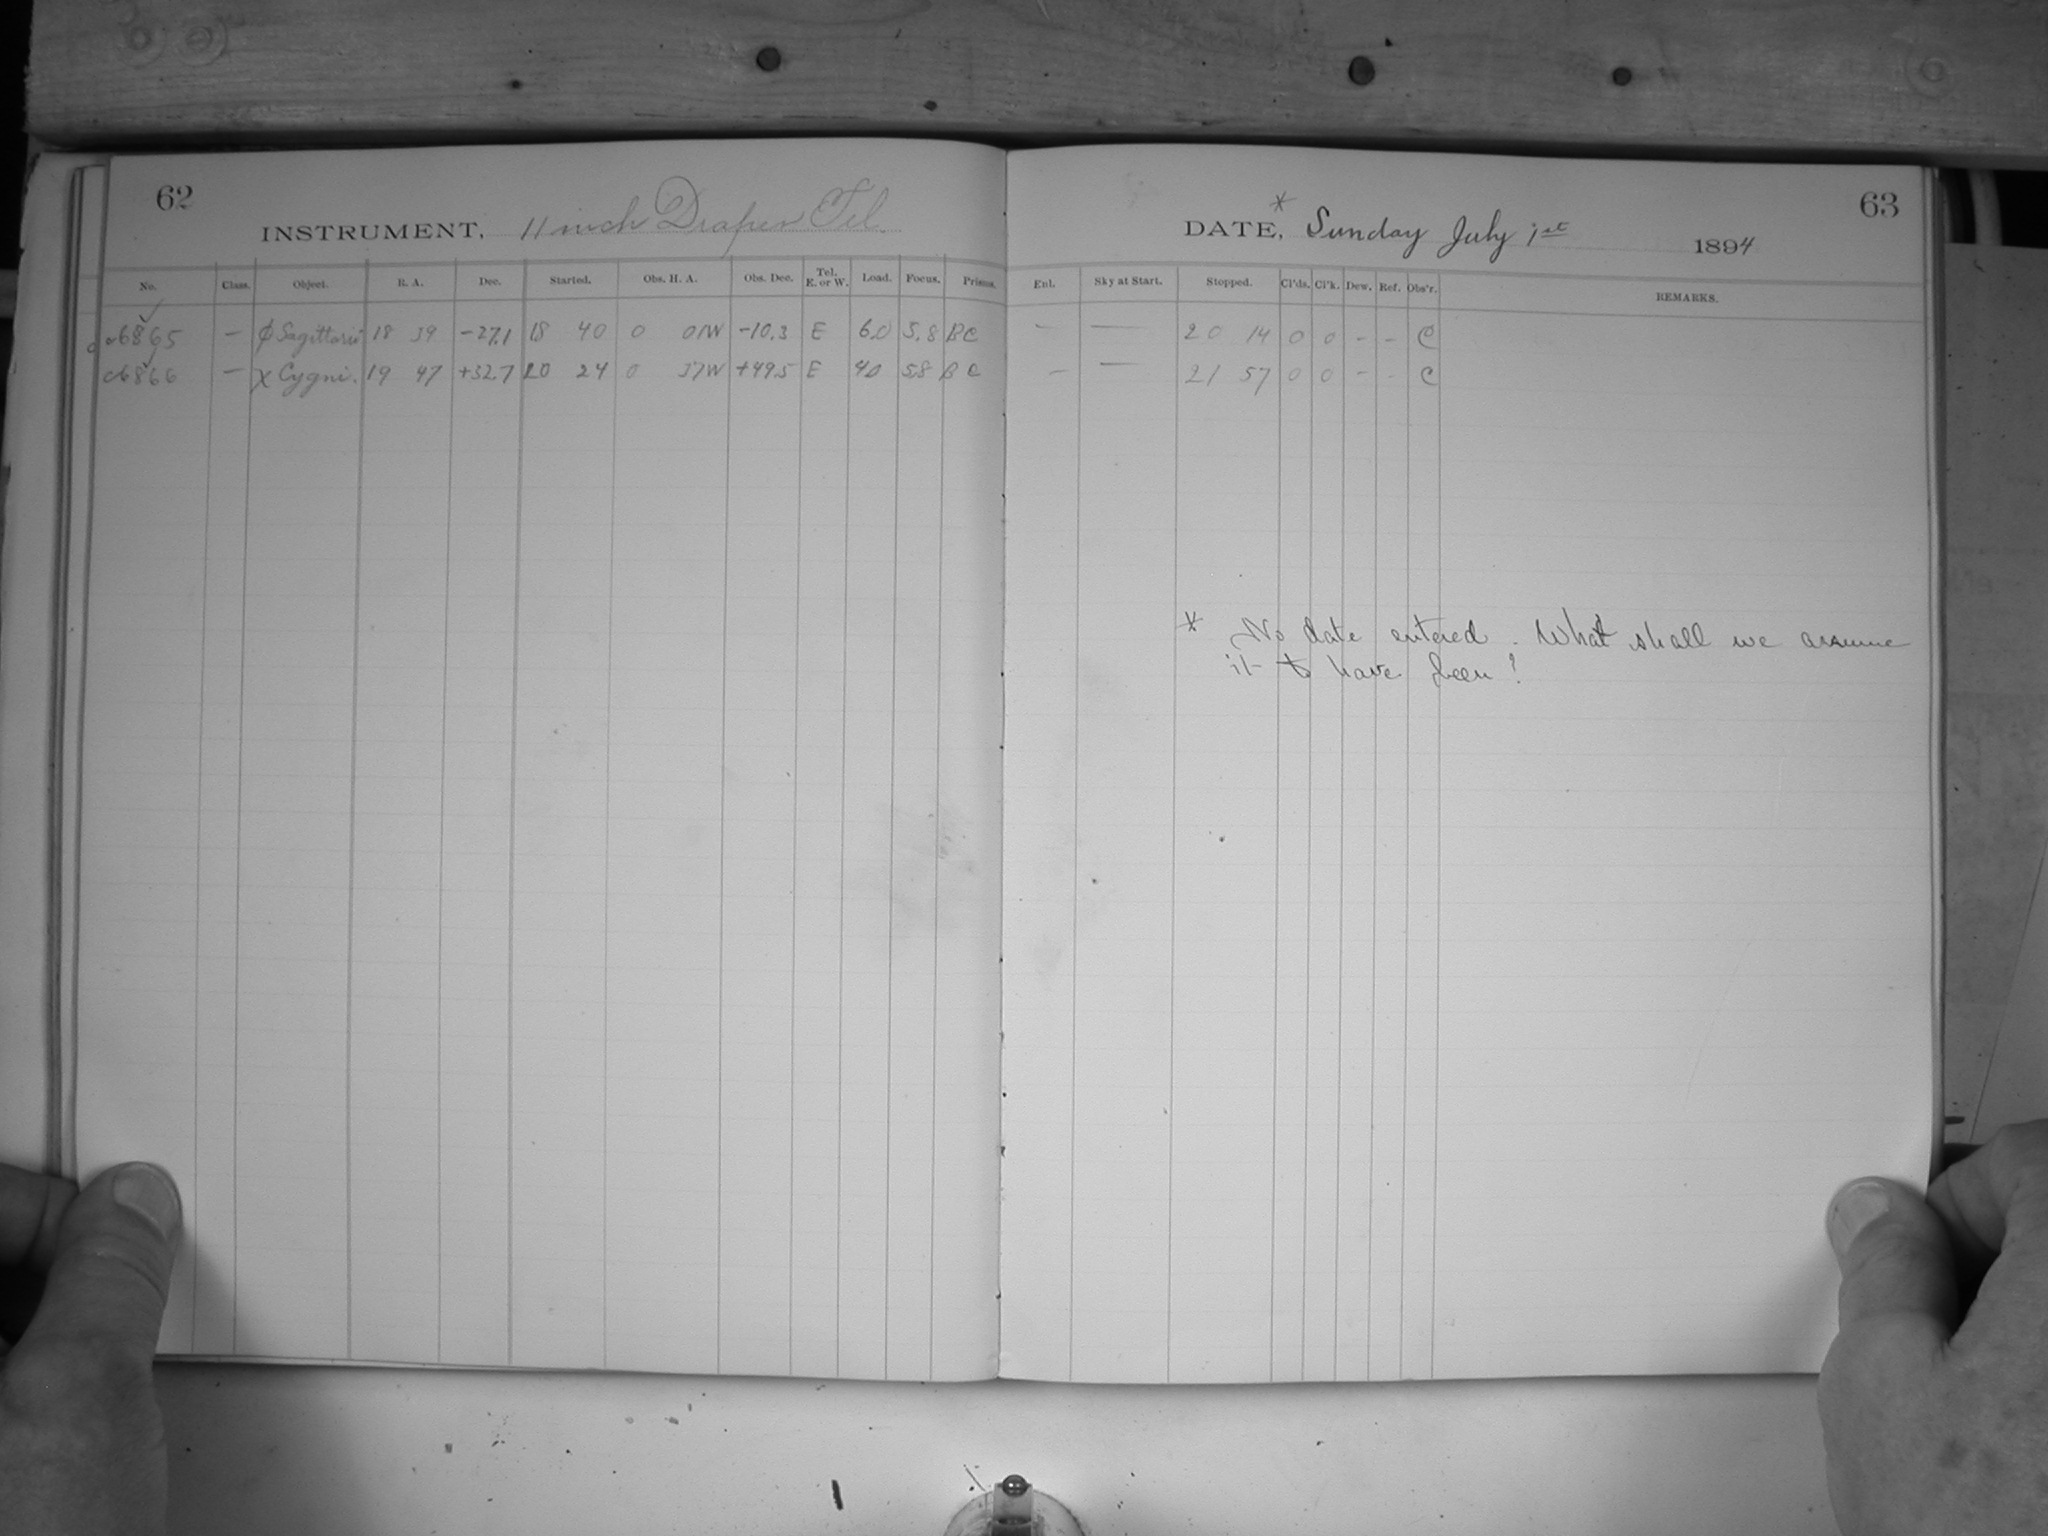 62
INSTRUMENT, 11 inch Draper Tel.
No. Class. Object. R. A. Dec. Started. Obs. H. A. Obs. Dec. Tel. E. or W. Load. Focus. Prisms.
c6865 — φ Sagittarii 18 39 -27.1 18 40 0 01W -10.3 E 60 5.8 BC
c6866 — χ Cygni. 19 47 +32.7 20 24 0 37W +49.5 E 40 58 B C
63
DATE,* Sunday July 1st 1894
Enl. Sky at Start. Stopped. Cl'ds. Cl'k. Dew. Ref. Obs'r. REMARKS.
— — 20 14 0 0 - - C
— — 21 57 0 0 - - C
* No date entered. What shall we assume
it to have been?